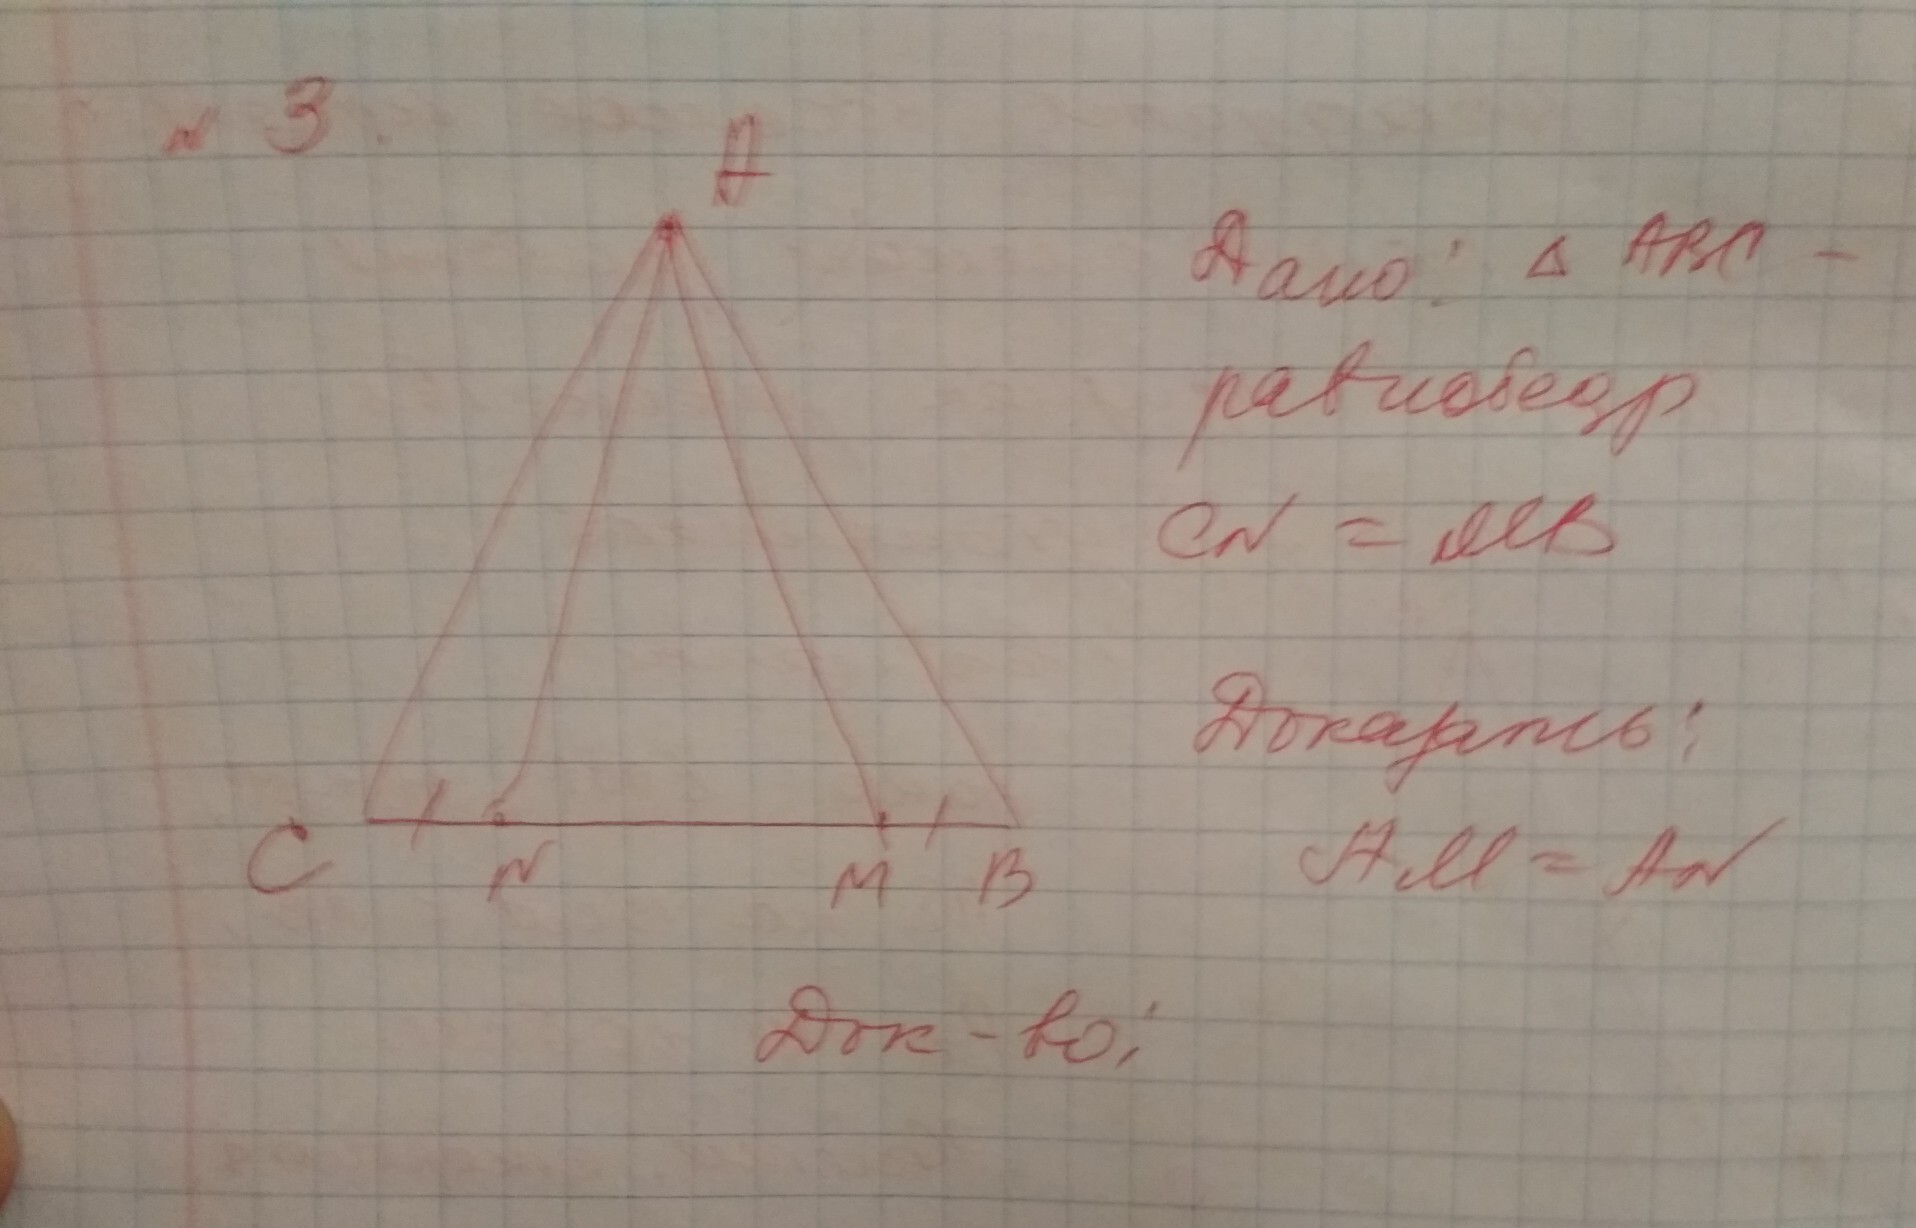 № 3.
A
Дано: △ ABC –
равнобедр
CN = MB
Доказать:
AM = AN
C N M B
Док-во: